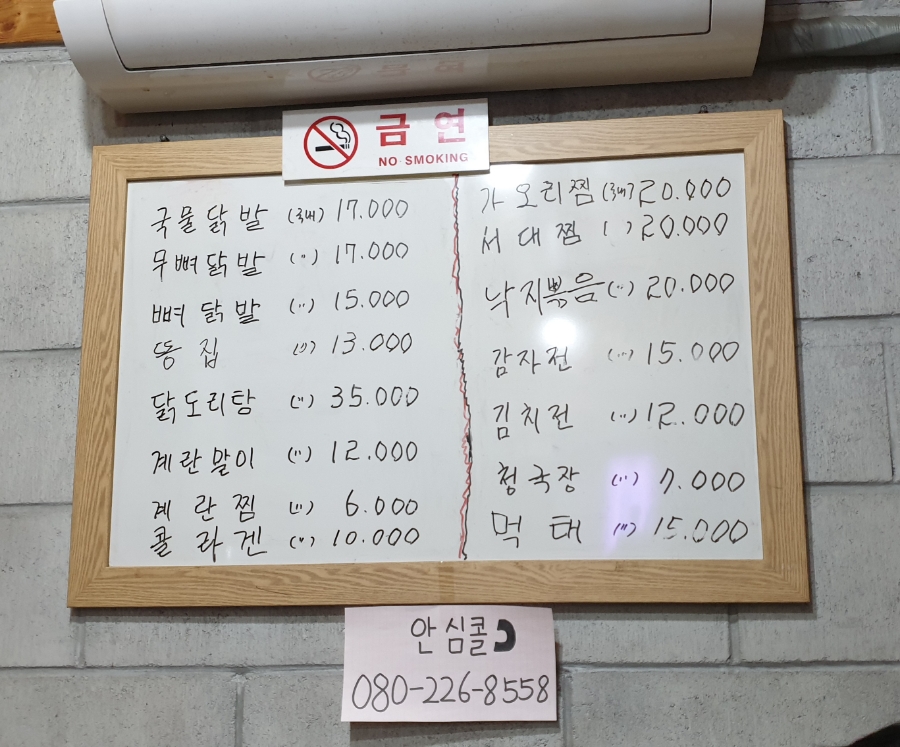 금연
NO SMOKING
국물닭발 (국내) 17.000
무뼈닭발 (〃) 17.000
뼈닭발 (〃) 15.000
똥집 (〃) 13.000
닭도리탕 (〃) 35.000
계란말이 (〃) 12.000
계란찜 (〃) 6.000
콜라겐 (〃) 10.000
가오리찜 (국내) 20.000
서대찜 ( ) 20.000
낙지볶음 (〃) 20.000
감자전 (〃) 15.000
김치전 (〃) 12.000
청국장 (〃) 7.000
먹태 (〃) 15.000
안심콜
080-226-8558